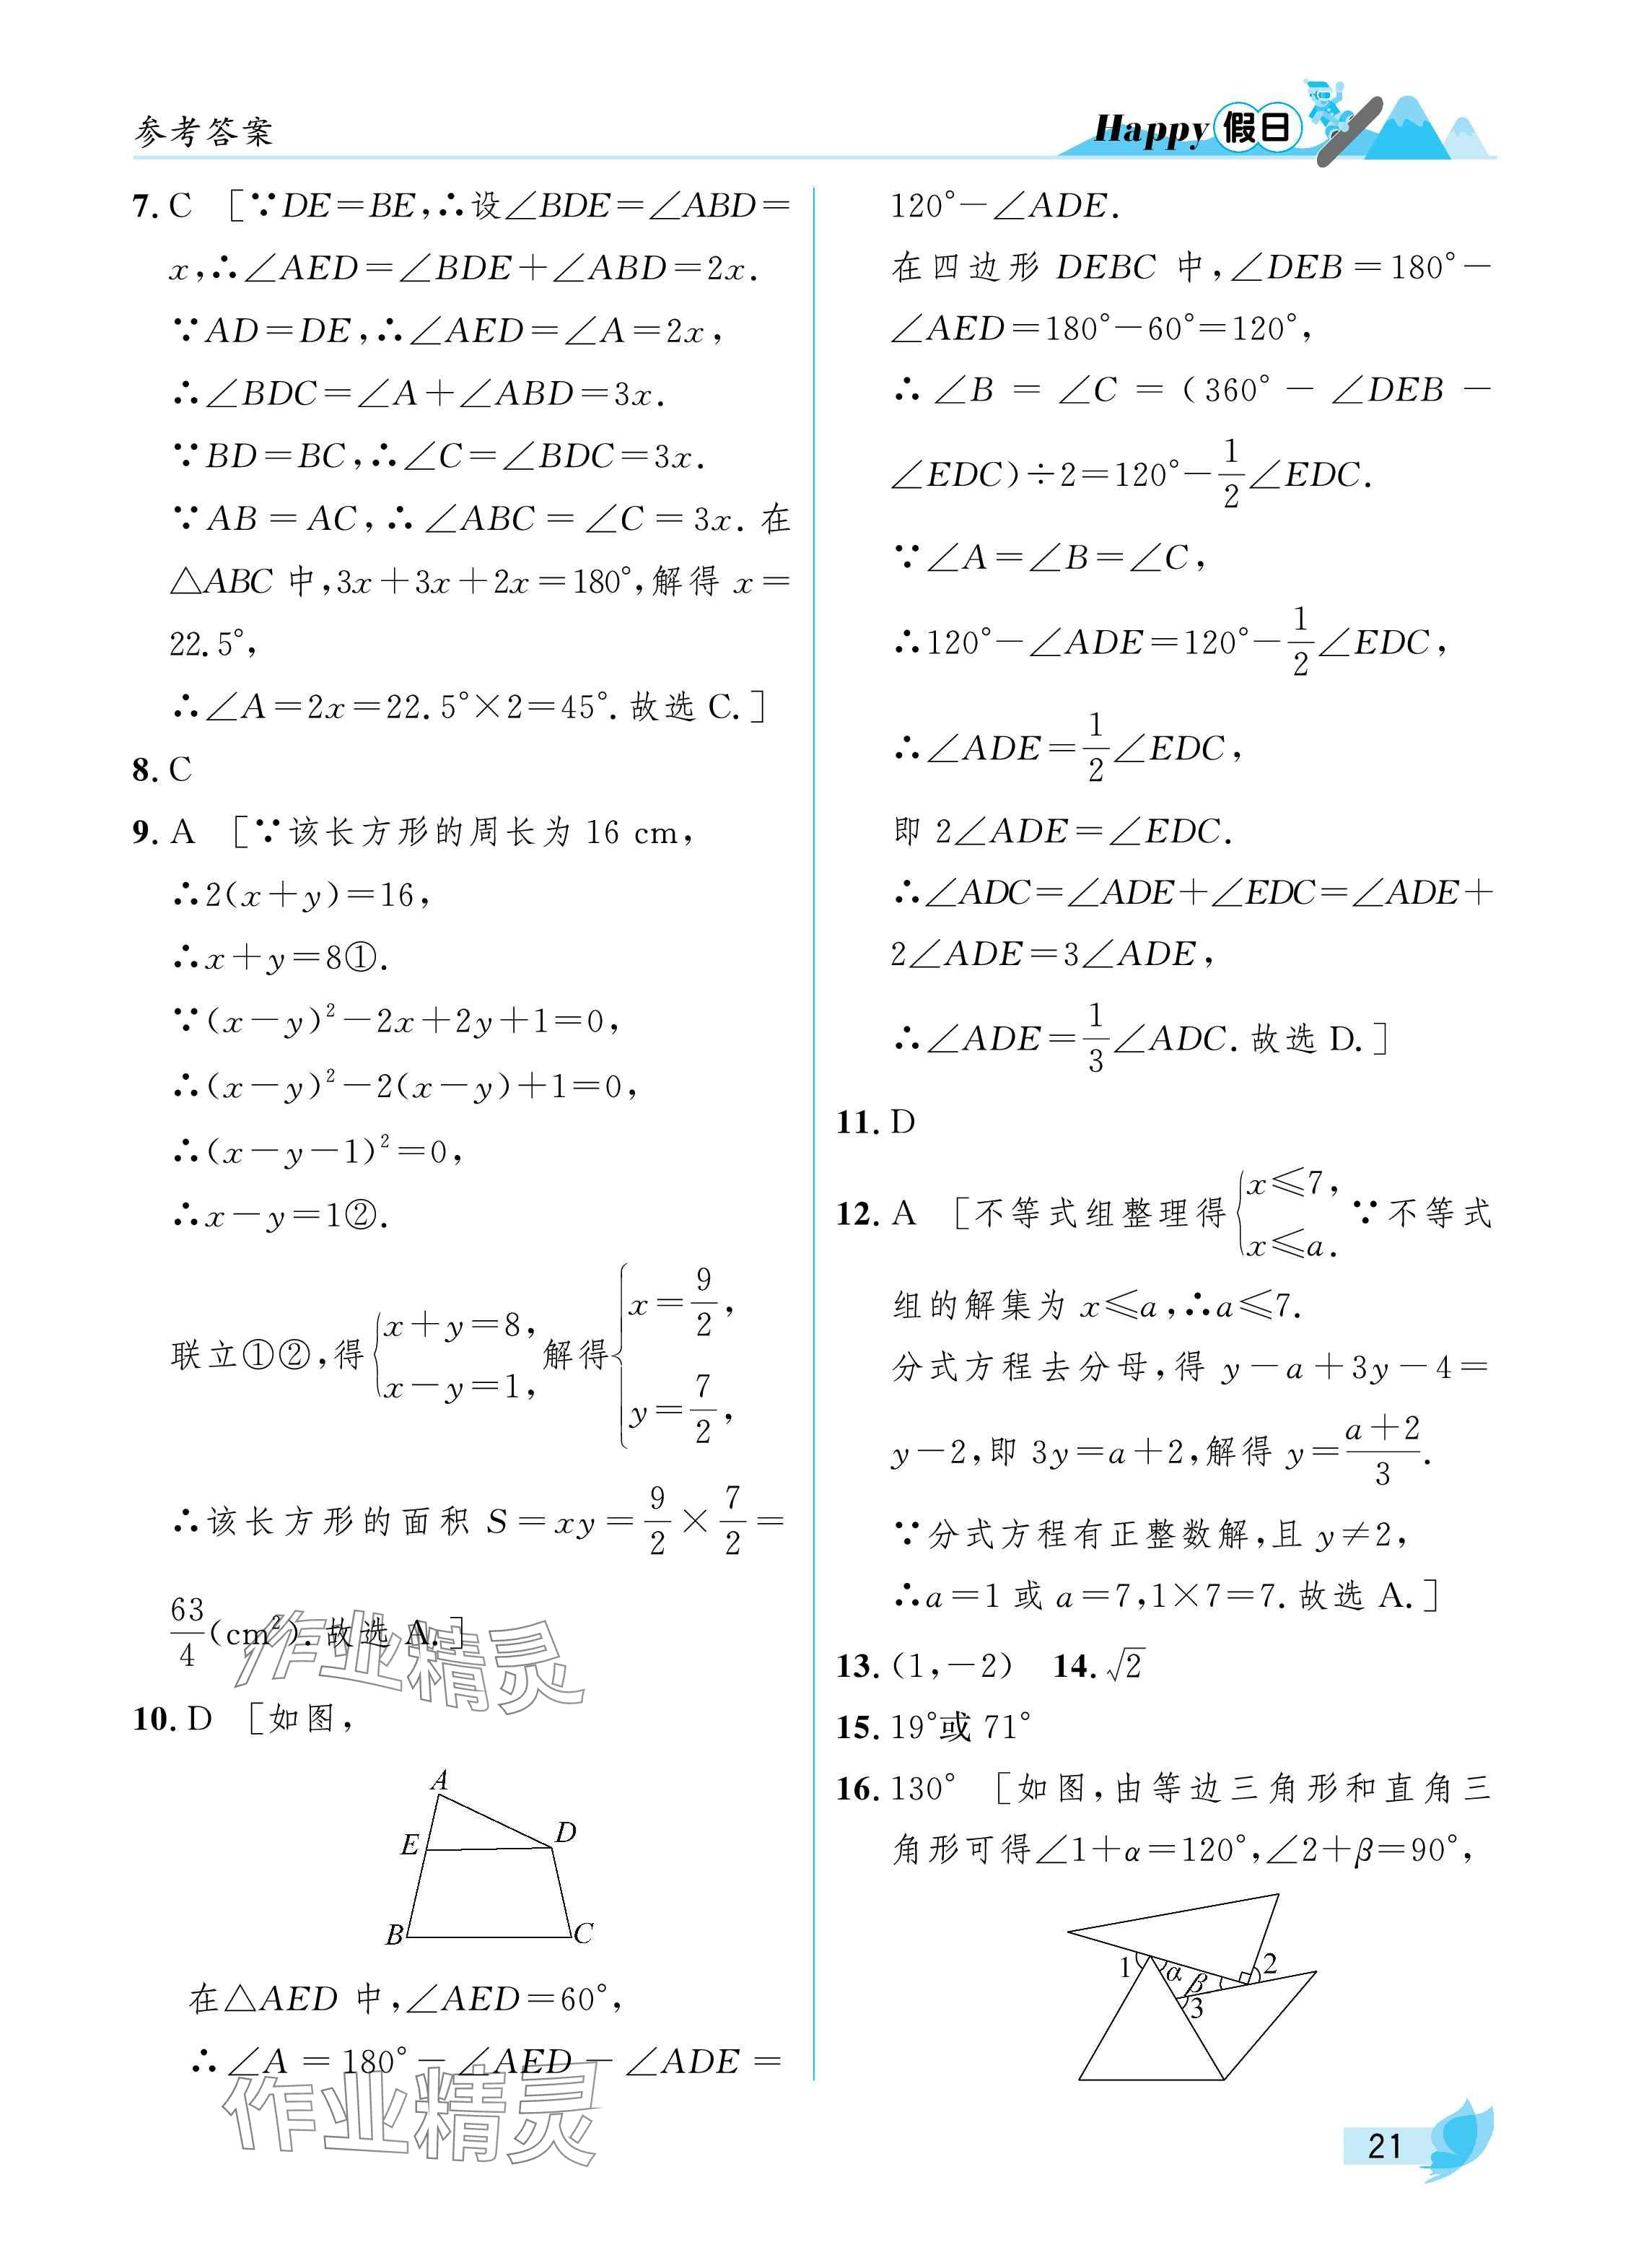 参考答案
Happy 假日
7. C [∵DE=BE,∴设∠BDE=∠ABD=
x,∴∠AED=∠BDE+∠ABD=2x.
∵AD=DE,∴∠AED=∠A=2x,
∴∠BDC=∠A+∠ABD=3x.
∵BD=BC,∴∠C=∠BDC=3x.
∵AB=AC,∴∠ABC=∠C=3x.在
△ABC中,3x+3x+2x=180°,解得 x=
22.5°,
∴∠A=2x=22.5°×2=45°.故选 C.]
8. C
9. A [∵该长方形的周长为 16 cm,
∴2(x+y)=16,
∴x+y=8①.
∵(x-y)²-2x+2y+1=0,
∴(x-y)²-2(x-y)+1=0,
∴(x-y-1)²=0,
∴x-y=1②.
联立①②,得{x+y=8, x-y=1, 解得{x=9/2, y=7/2,
∴该长方形的面积 S=xy=9/2×7/2=
63/4(cm²).故选 A.]
作业精灵
10. D [如图,
A
E
D
B
C
在△AED 中,∠AED=60°,
∴∠A=180°-∠AED-∠ADE=
作业精灵
120°-∠ADE.
在四边形 DEBC 中,∠DEB=180°-
∠AED=180°-60°=120°,
∴∠B=∠C=(360°-∠DEB-
∠EDC)÷2=120°-1/2∠EDC.
∵∠A=∠B=∠C,
∴120°-∠ADE=120°-1/2∠EDC,
∴∠ADE=1/2∠EDC,
即 2∠ADE=∠EDC.
∴∠ADC=∠ADE+∠EDC=∠ADE+
2∠ADE=3∠ADE,
∴∠ADE=1/3∠ADC.故选 D.]
11. D
12. A [不等式组整理得{x≤7, x≤a. ∵不等式
组的解集为 x≤a,∴a≤7.
分式方程去分母,得 y-a+3y-4=
y-2,即 3y=a+2,解得 y=(a+2)/3.
∵分式方程有正整数解,且 y≠2,
∴a=1 或 a=7,1×7=7.故选 A.]
13. (1,-2) 14. √2
15. 19°或 71°
16. 130° [如图,由等边三角形和直角三
角形可得∠1+α=120°,∠2+β=90°,
1
α
β
2
3
21